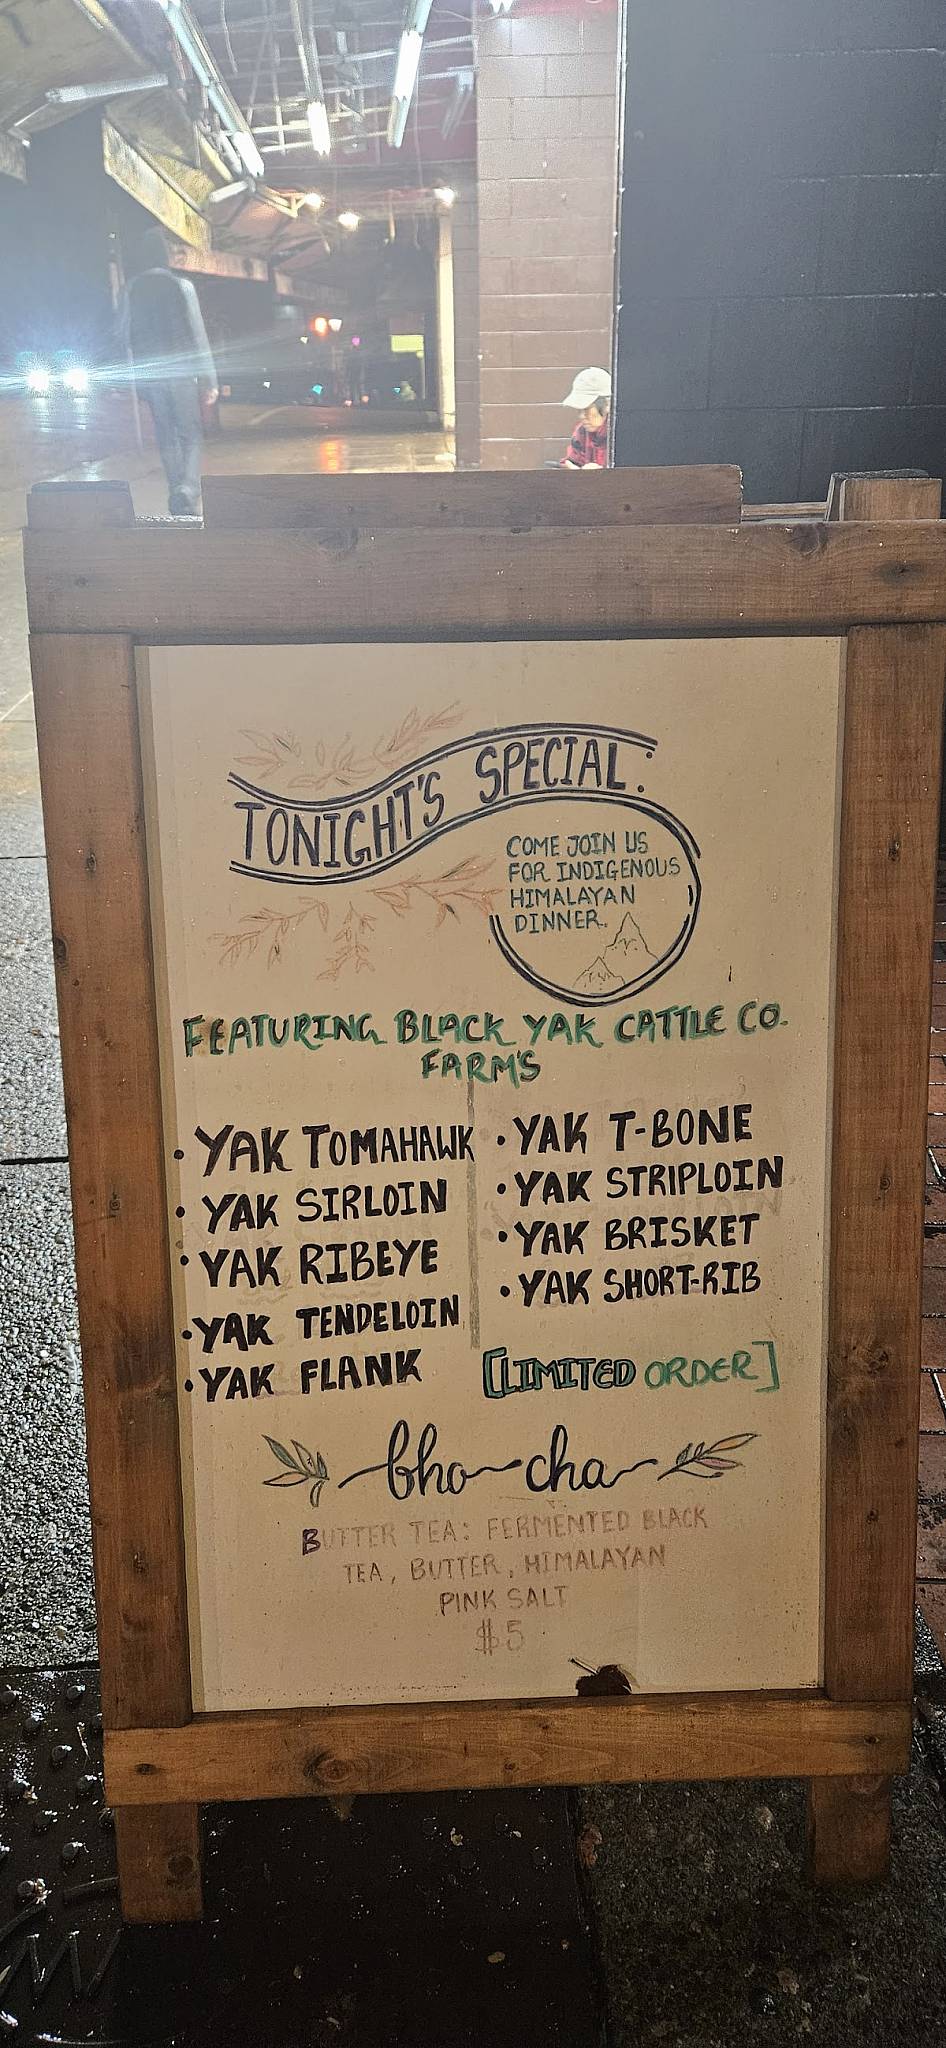 TONIGHT'S SPECIAL:
COME JOIN US
FOR INDIGENOUS
HIMALAYAN
DINNER.
FEATURING BLACK YAK CATTLE CO.
FARM'S
• YAK TOMAHAWK
• YAK SIRLOIN
• YAK RIBEYE
• YAK TENDELOIN
• YAK FLANK
• YAK T-BONE
• YAK STRIPLOIN
• YAK BRISKET
• YAK SHORT-RIB
[LIMITED ORDER]
bho cha
BUTTER TEA: FERMENTED BLACK
TEA, BUTTER, HIMALAYAN
PINK SALT
$5